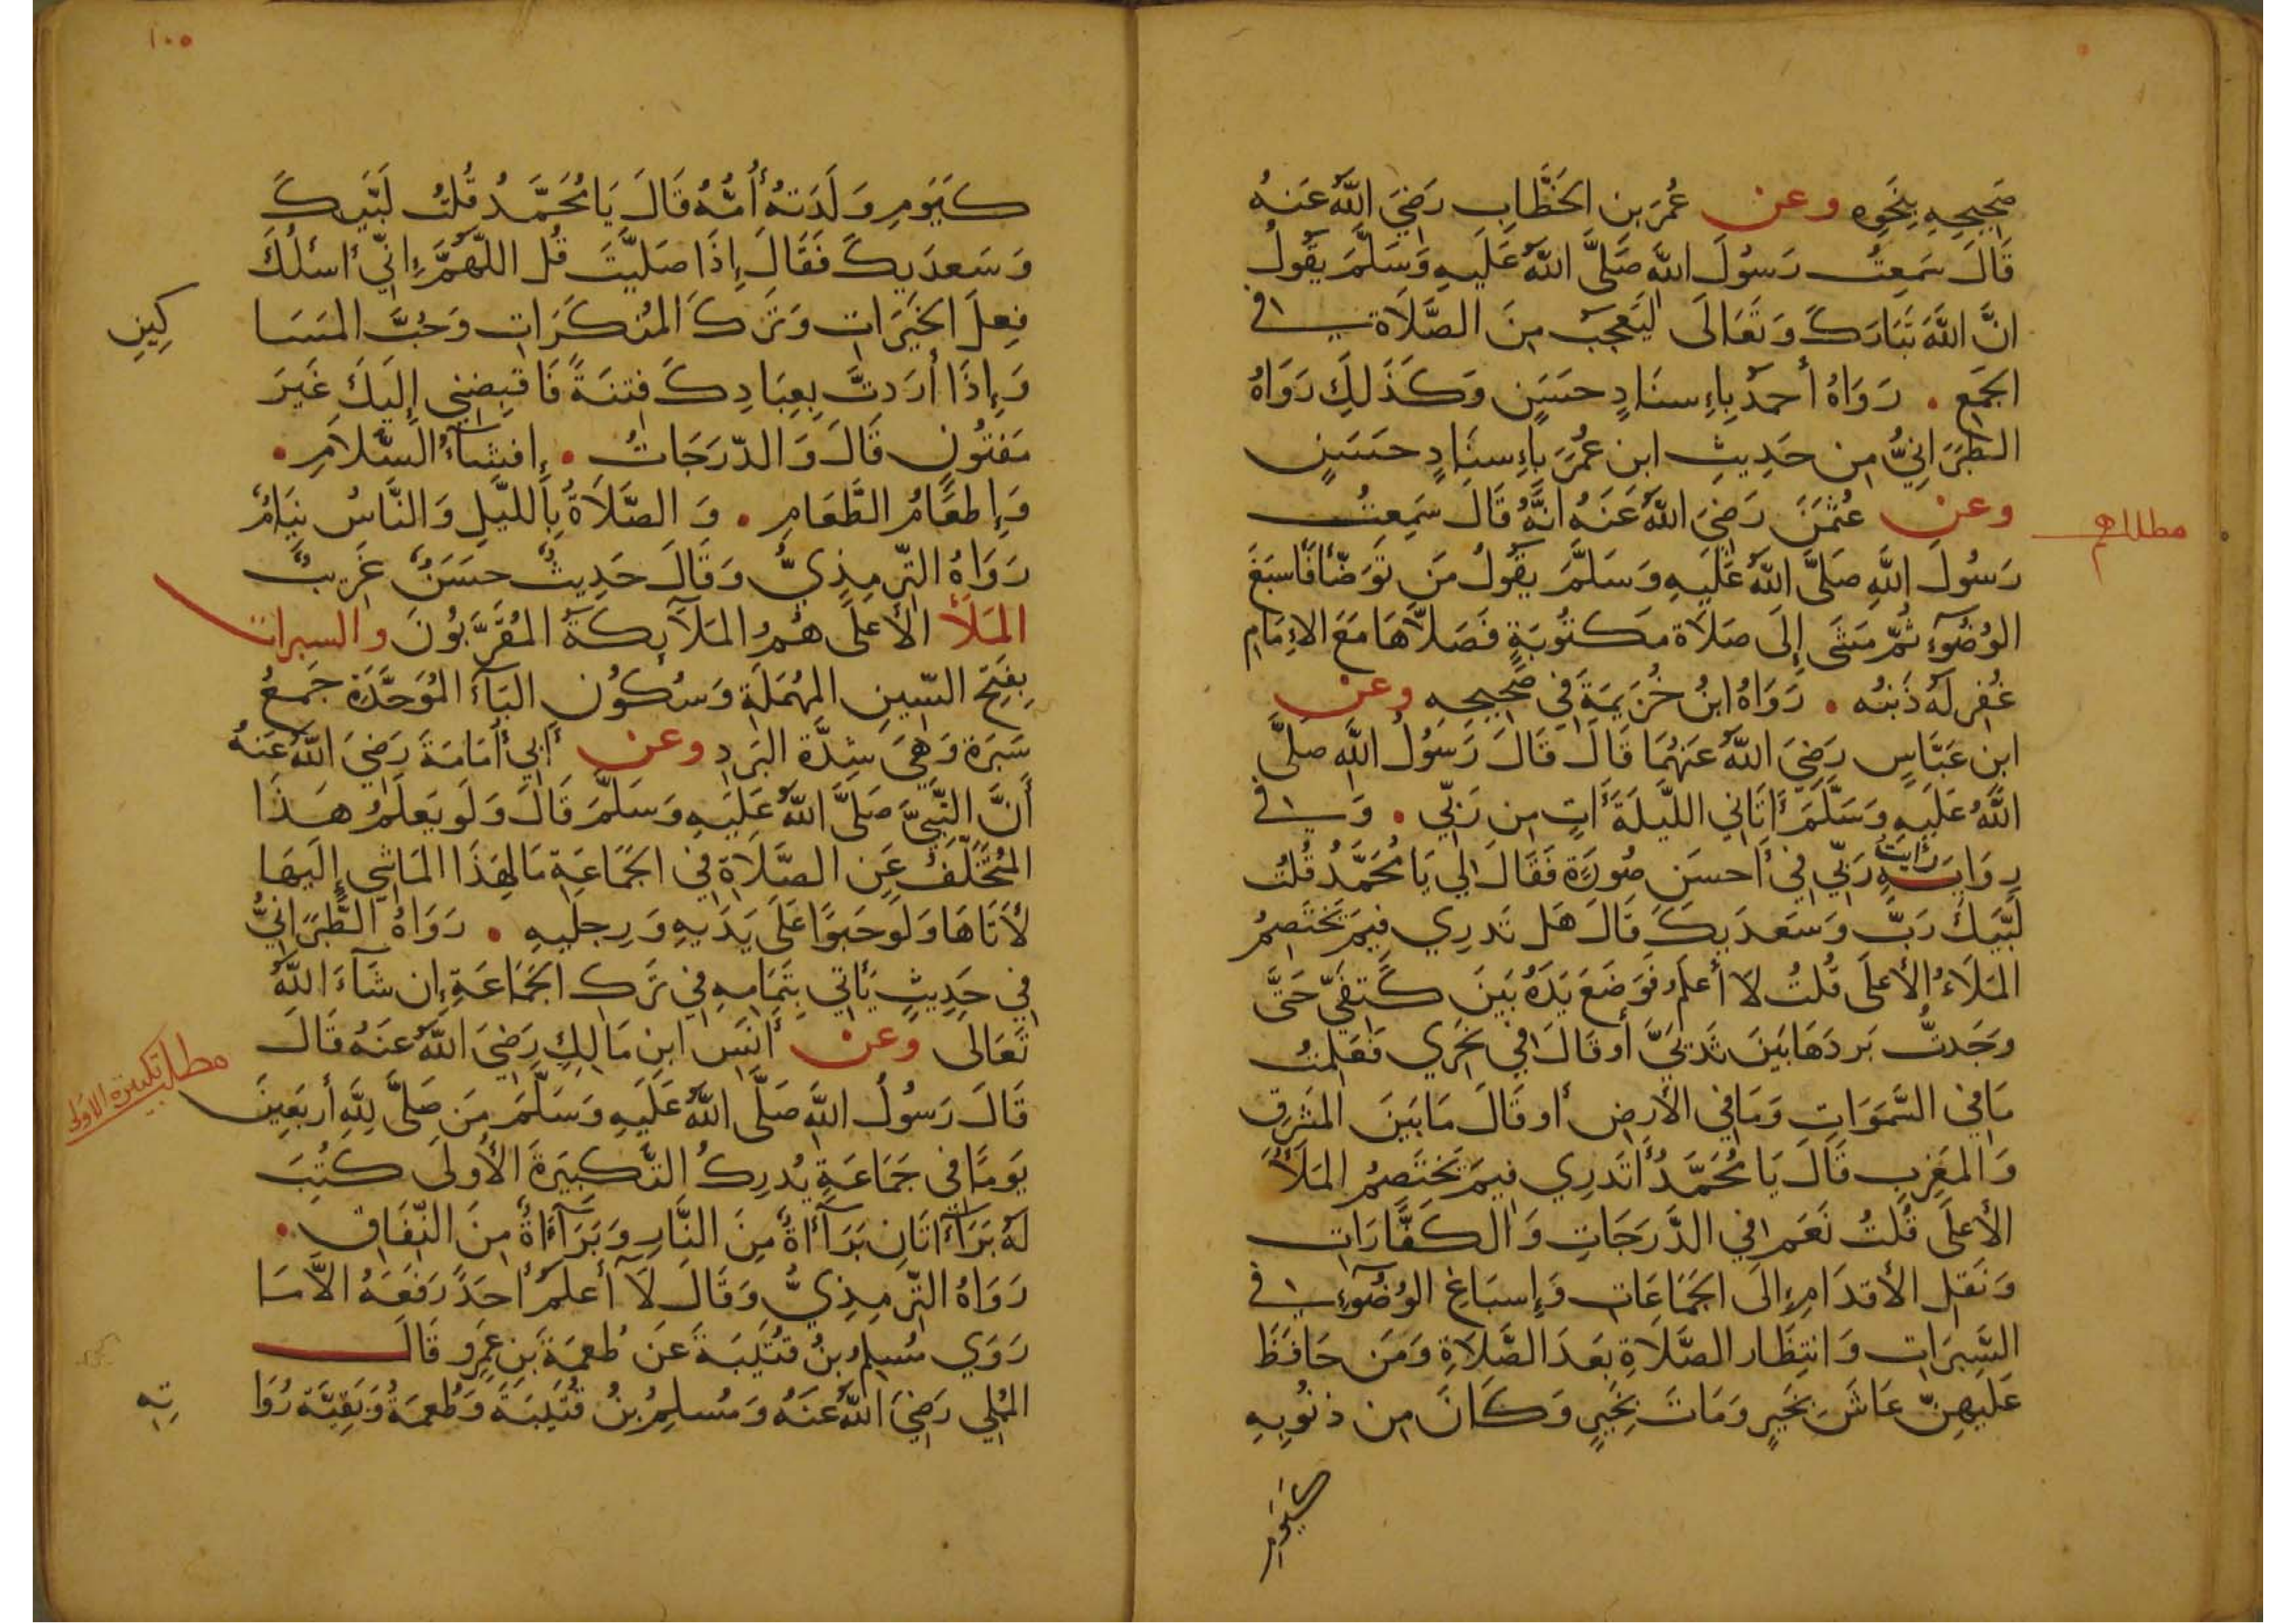 صَحِيحِهِ بِنَحوِه وعن عُمَرَ بن الخَطَّابِ رَضِيَ اللَّهُ عَنهُ
قَالَ سَمِعتُ رَسُولَ اللَّهِ صَلَّى اللَّهُ عَلَيهِ وَسَلَّمَ يَقُولُ
انَّ اللَّهَ تَبَارَكَ وَتَعَالَى لَيَعجَبُ مِنَ الصَّلَاةِ في
الجَمعِ . رَوَاهُ أَحمَدُ بِإِسنَادٍ حَسَنٍ وَكَذَلِكَ رَوَاهُ
الطَّبَرَانِيُّ مِن حَدِيثِ ابن عُمَرَ بِإِسنَادٍ حَسَنٍ
وعن عُثمَنَ رَضِيَ اللَّهُ عَنهُ انَّهُ قَالَ سَمِعتُ
رَسُولَ اللَّهِ صَلَّى اللَّهُ عَلَيهِ وَسَلَّمَ يَقُولُ مَن تَوَضَّأَ فَأَسبَغَ
الوُضُوءَ ثُمَّ مَشَى إِلَى صَلَاةٍ مَكتُوبَةٍ فَصَلَّاهَا مَعَ الإِمَامِ
غُفِرَ لَهُ ذَنبُه . رَوَاهُ ابنُ خُزَيمَةَ فِي صَحِيحِه وعن
ابنِ عَبَّاسٍ رَضِيَ اللَّهُ عَنهُمَا قَالَ قَالَ رَسُولُ اللَّهِ صَلَّى
اللَّهُ عَلَيهِ وَسَلَّمَ أَتَانِي اللَّيلَةَ أَتٍ مِن رَبِّي . وَفي
رِوَايَةٍ رَأَيتُ رَبِّي فِي أَحسَنِ صُورَةٍ فَقَالَ لِي يَا مُحَمَّدُ قُلتُ
لَبَّيكَ رَبِّ وَسَعدَيكَ قَالَ هَل تَدرِي فِيمَ تَختَصِمُ
المَلَاءُ الأَعلَى قُلتُ لَا أَعلَمُ فَوَضَعَ يَدَهُ بَينَ كَتِفَيَّ حَتَّى
وَجَدتُّ بَردَهَا بَينَ ثَديَيَّ أَو قَالَ فِي نَحرِي فَعَلِمتُ
مَا فِي السَّمَوَاتِ وَمَا فِي الأَرضِ أَو قَالَ مَا بَينَ المَشرِقِ
وَالمَغرِبِ قَالَ يَا مُحَمَّدُ أَتَدرِي فِيمَ تَختَصِمُ المَلَأُ
الأَعلَى قُلتُ نَعَم فِي الدَّرَجَاتِ وَالكَفَّارَاتِ
وَنَقلِ الأَقدَامِ إِلَى الجَمَاعَاتِ وَإِسبَاغِ الوُضُوءِ في
السَّبَرَاتِ وَانتِظَارِ الصَّلَاةِ بَعدَ الصَّلَاةِ وَمَن حَافَظَ
عَلَيهِنَّ عَاشَ بِخَيرٍ وَمَاتَ بِخَيرٍ وَكَانَ مِن ذنُوبِهِ
كَيَومِ
١٠٥
كَيَومِ وَلَدَتهُ أُمُّهُ قَالَ يَا مُحَمَّدُ قُلتُ لَبَّيكَ
وَسَعدَيكَ فَقَالَ إِذَا صَلَّيتَ قُل اللَّهُمَّ إِنِّي أَسئَلُكَ
فِعلَ الخَيرَاتِ وَتَركَ المُنكَرَاتِ وَحُبَّ المَسَا
كِينِ
وَإِذَا أَرَدتَّ بِعِبَادِكَ فِتنَةً فَاقبِضنِي إِلَيكَ غَيرَ
مَفتُونٍ قَالَ وَالدَّرَجَاتُ . إِفشَاءُ السَّلَامِ .
وَإِطعَامُ الطَّعَامِ . وَالصَّلَاةُ بِاللَّيلِ وَالنَّاسُ نِيَامٌ
رَوَاهُ التِّرمِذِيُّ وَقَالَ حَدِيثٌ حَسَنٌ غَرِيبٌ
المَلَأُ الأَعلَى هُمُ المَلَآئِكَةُ المُقَرَّبُونَ والسبرات
بِفَتحِ السِّينِ المُهمَلَةِ وَسُكُونِ البَآءِ المُوَحَّدَةِ جَمعُ
سَبرَة وَهِيَ شِدَّة البَردِ وعن أَبِي أُمَامَةَ رَضِيَ اللَّهُ عَنهُ
أَنَّ النَّبِيَّ صَلَّى اللَّهُ عَلَيهِ وَسَلَّمَ قَالَ وَلَو يَعلَمُ هَذَا
المُتَخَلِّفُ عَنِ الصَّلَاةِ فِي الجَمَاعَةِ مَا لِهَذَا المَاشِي إِلَيهَا
لَأَتَاهَا وَلَو حَبوًا عَلَى يَدَيهِ وَرِجلَيهِ . رَوَاهُ الطَّبَرَانِيُّ
فِي حَدِيثٍ يَأتِي بِتَمَامِهِ فِي تَركِ الجَمَاعَةِ إِن شَآءَ اللَّهُ
تَعَالَى وعن أَنَسِ ابنِ مَالِكٍ رَضِيَ اللَّهُ عَنهُ قَالَ
مطلب تكبيرة الاولى
قَالَ رَسُولُ اللَّهِ صَلَّى اللَّهُ عَلَيهِ وَسَلَّمَ مَن صَلَّى لِلَّهِ أَربَعِينَ
يَومًا فِي جَمَاعَةٍ يُدرِكُ التَّكبِيرَةَ الأُولَى كُتِبَ
لَهُ بَرَآءَاتَانِ بَرَآءَاةٌ مِنَ النَّارِ وَبَرَآءَاةٌ مِنَ النِّفَاقِ .
رَوَاهُ التِّرمِذِيُّ وَقَالَ لَا أَعلَمُ أَحَدً رَفَعَهُ الَّا مَا
رَوَي مُسلِمُ بنُ قُتَيبَةَ عَن طُعمَةَ بنِ عَمرٍو قَالَ
المُملِي رَضِيَ اللَّهُ عَنهُ وَمُسلِمُ بنُ قُتَيبَةَ وَطُعمَةُ وَبَقِيَّة رُوَا
تِهِ